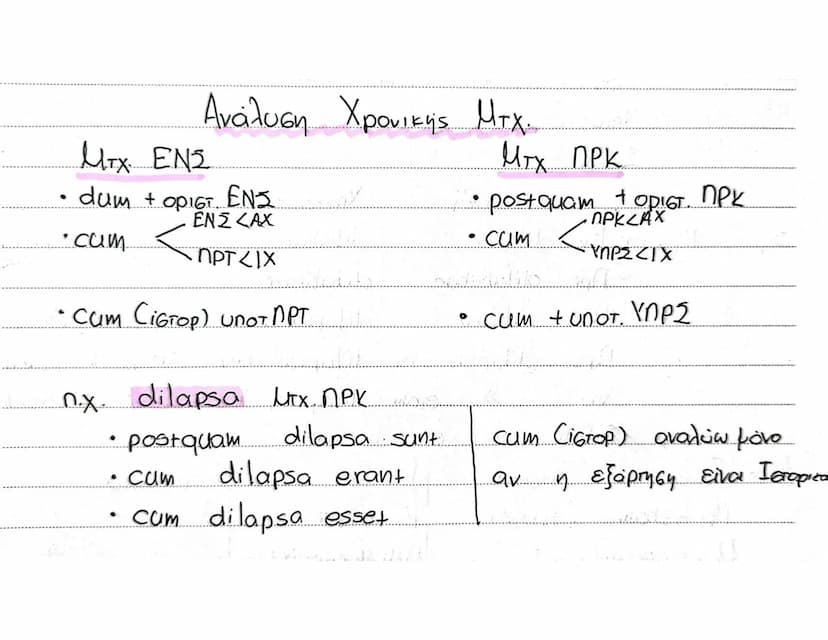 Ανάλυση Χρονικής Μτχ.
Μτχ. ΕΝΣ
Μτχ ΠΡΚ
• dum + οριστ. ΕΝΣ
• postquam + οριστ. ΠΡΚ
• cum < ΕΝΣ<ΑΧ
ΠΡΤ<ΙΧ
• cum < ΠΡΚ<ΑΧ
ΥΠΡΣ<ΙΧ
• cum (ιστορ) υποτ ΠΡΤ
• cum + υποτ. ΥΠΡΣ
π.χ. dilapsa μτχ. ΠΡΚ
• postquam dilapsa sunt
• cum dilapsa erant
• cum dilapsa esset
cum (ιστορ) αναλύω μόνο
αν η εξάρηση είναι